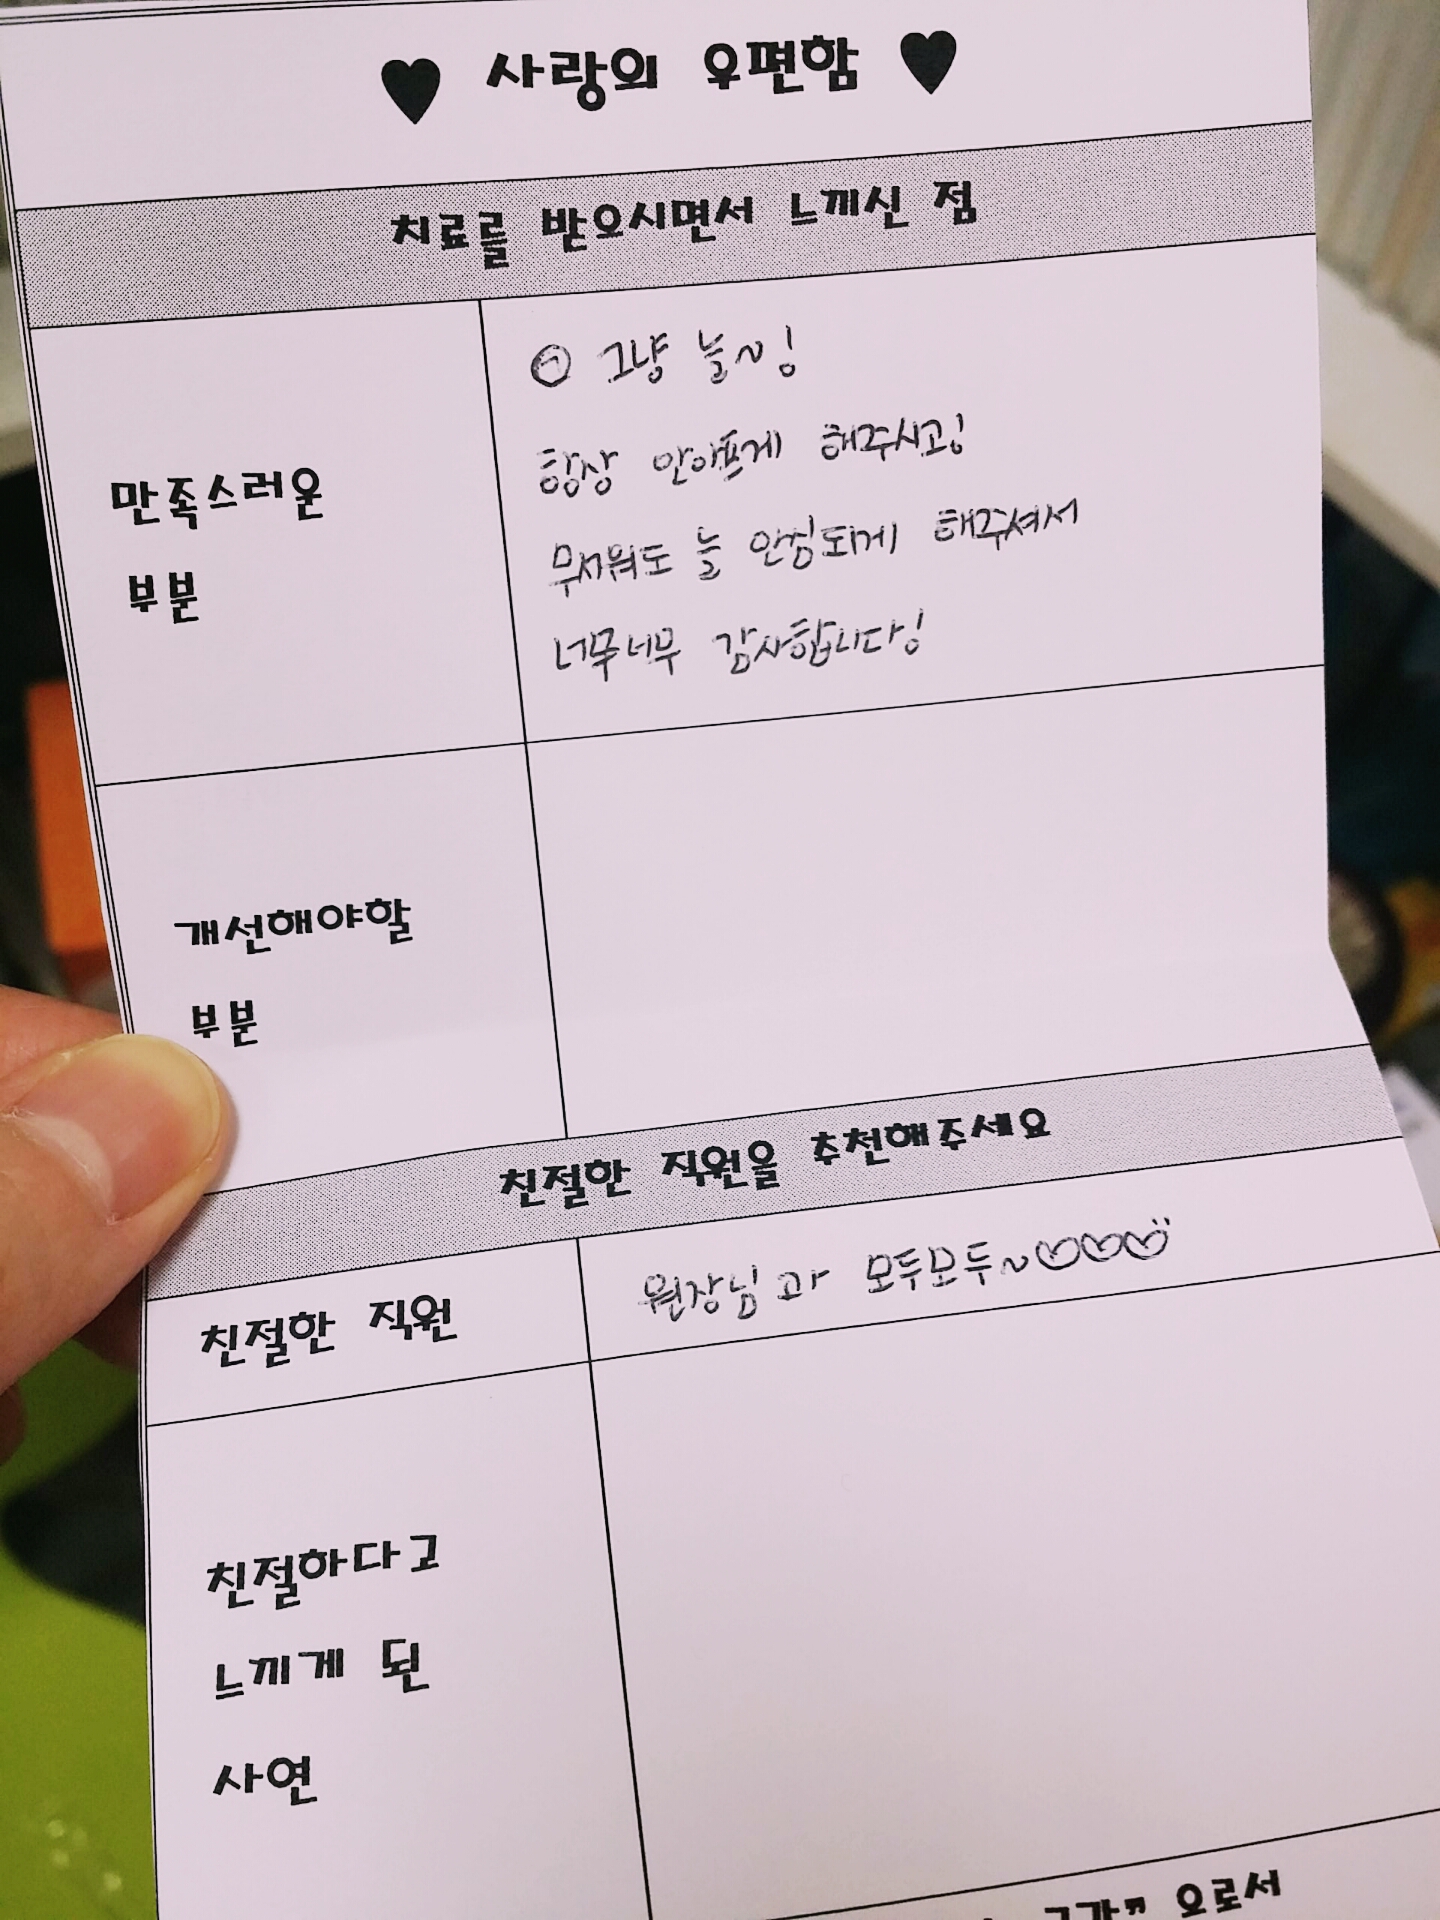 ♥ 사랑의 우편함 ♥
치료를 받으시면서 느끼신 점
만족스러운
부분
그냥 늘~!
항상 안아프게 해주시고!
무서워도 늘 안심되게 해주셔서
너무너무 감사합니다!
개선해야할
부분
친절한 직원을 추천해주세요
친절한 직원
원장님과 모두모두~♡♡♡
친절하다고
느끼게 된
사연
” 으로서